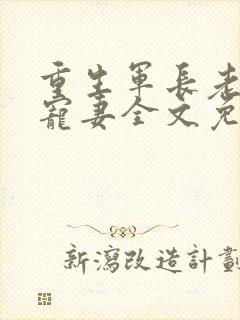 重生军长老
宠妻全文免
新瀉改造計劃